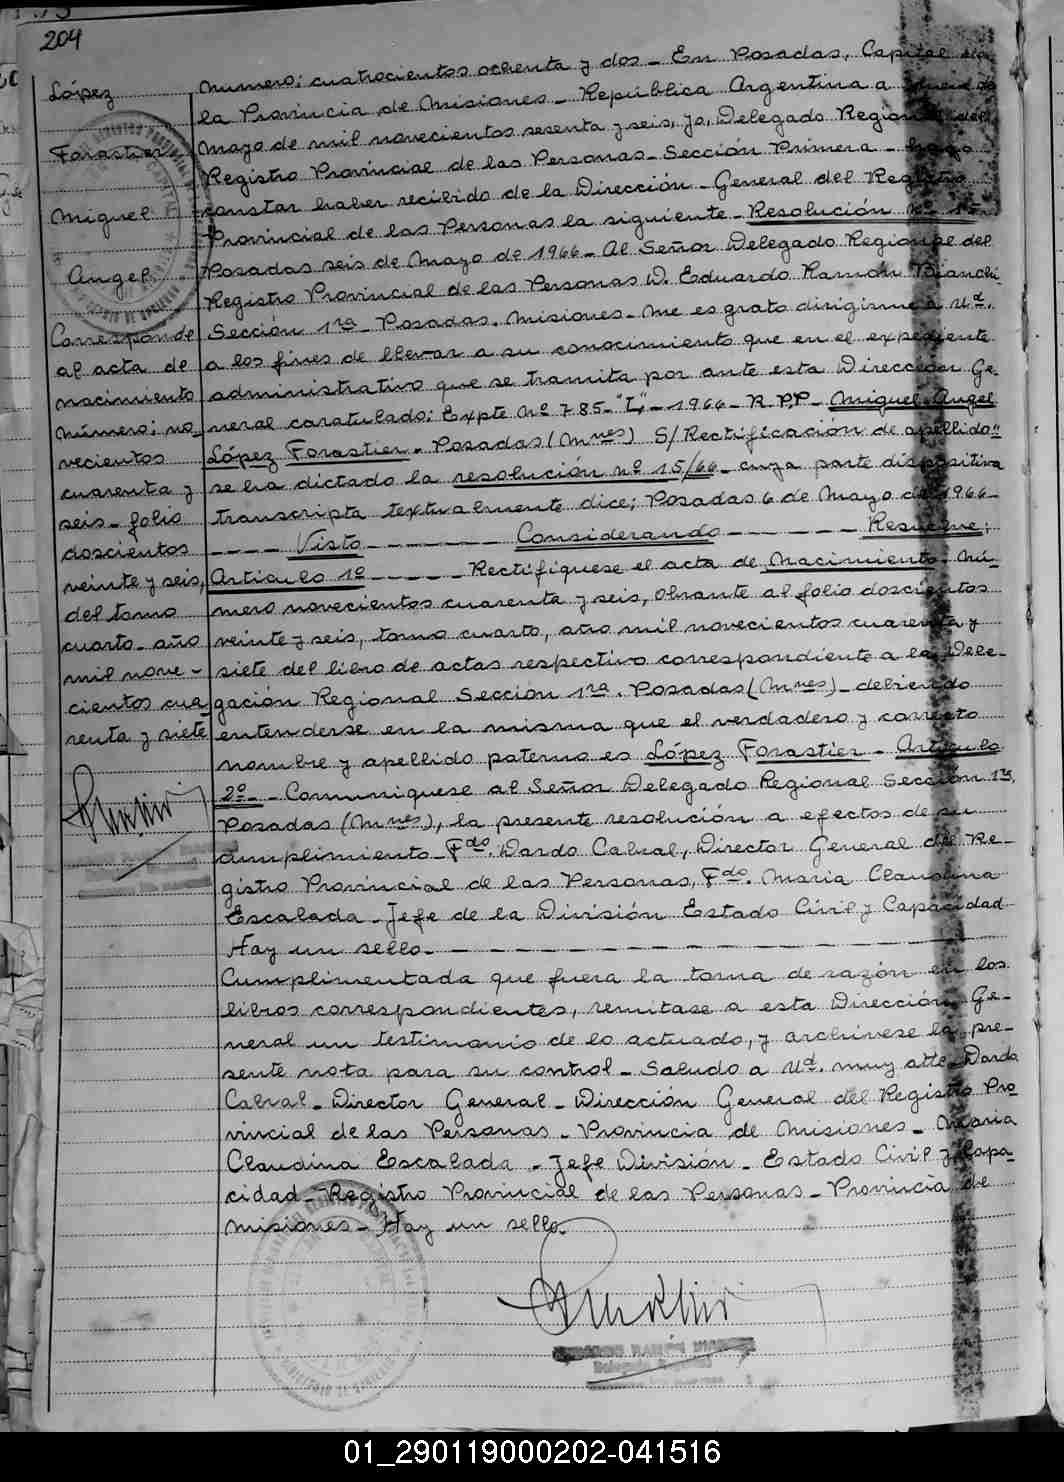 204
López
Forastier
Miguel
Angel
Corresponde
al acta de
nacimiento
número; no-
vecientos
cuarenta y
seis - folio
doscientos
veinte y seis,
del tomo
cuarto - año
mil nove-
cientos cua-
renta y siete
Número; cuatrocientos ochenta y dos - En Posadas, Capital de
la Provincia de Misiones - República Argentina a
Mayo de mil novecientos sesenta y seis, yo, Delegado Regional del
Registro Provincial de las Personas - Sección Primera - hago
constar haber recibido de la Dirección - General del Registro
Provincial de las Personas la siguiente - Resolución Nº 15
Posadas seis de Mayo de 1966 - Al Señor Delegado Regional del
Registro Provincial de las Personas D. Eduardo Ramón Bianchi
Sección 1ra - Posadas. Misiones - Me es grato dirigirme a Ud.
a los fines de llevar a su conocimiento que en el expediente
administrativo que se tramita por ante esta Dirección Ge-
neral caratulado: Expte Nº 785 - "L" - 1966 - R.P.P - Miguel Angel
López Forastier - Posadas (Mnes) S/Rectificación de apellido"
se ha dictado la resolución nº 15/66 - cuya parte dispositiva
transcripta textualmente dice; Posadas 6 de Mayo de 1966 -
---- Visto ------ Considerando ------ Resuelve;
Artículo 1º ----- Rectifíquese el acta de Nacimiento. Nú-
mero novecientos cuarenta y seis, obrante al folio doscientos
veinte y seis, tomo cuarto, año mil novecientos cuarenta y
siete del libro de actas respectivo correspondiente a la Dele-
gación Regional Sección 1ra. Posadas (Mnes) - debiendo
entenderse en la misma que el verdadero y correcto
nombre y apellido paterno es López Forastier - Artículo
2º - Comuníquese al Señor Delegado Regional Sección 1ra.
Posadas (Mnes), la presente resolución a efectos de su
cumplimiento - Fdo. Dardo Cabral, Director General del Re-
gistro Provincial de las Personas, Fdo. Maria Claudina
Escalada - Jefe de la División Estado Civil y Capacidad
Hay un sello -
Cumplimentada que fuera la toma de razón en los
libros correspondientes, remítase a esta Dirección Ge-
neral un testimonio de lo actuado, y archívese la pre-
sente nota para su control - Saludo a Ud. muy atte - Dardo
Cabral - Director General - Dirección General del Registro Pro-
vincial de las Personas - Provincia de Misiones - Maria
Claudina Escalada - Jefe División - Estado Civil y Capa-
cidad - Registro Provincial de las Personas - Provincia de
Misiones - Hay un sello.
01_290119000202-041516